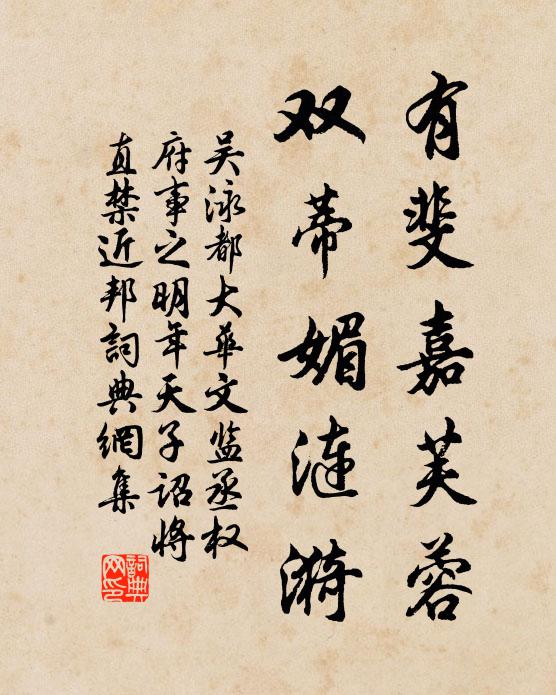 有斐嘉芙蓉
双蒂媚涟漪
吴泳都大华文监丞权
府事之明年天子诏将
直禁近邦詞典網集
詞典网印